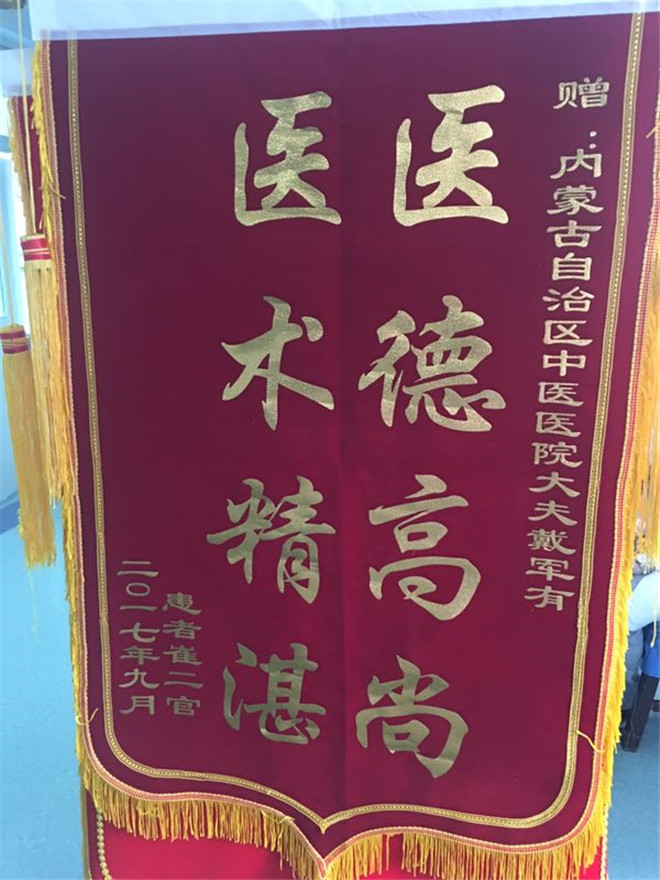 赠：内蒙古自治区中医医院大夫戴军有
医德高尚
医术精湛
患者崔二官
二〇一七年九月